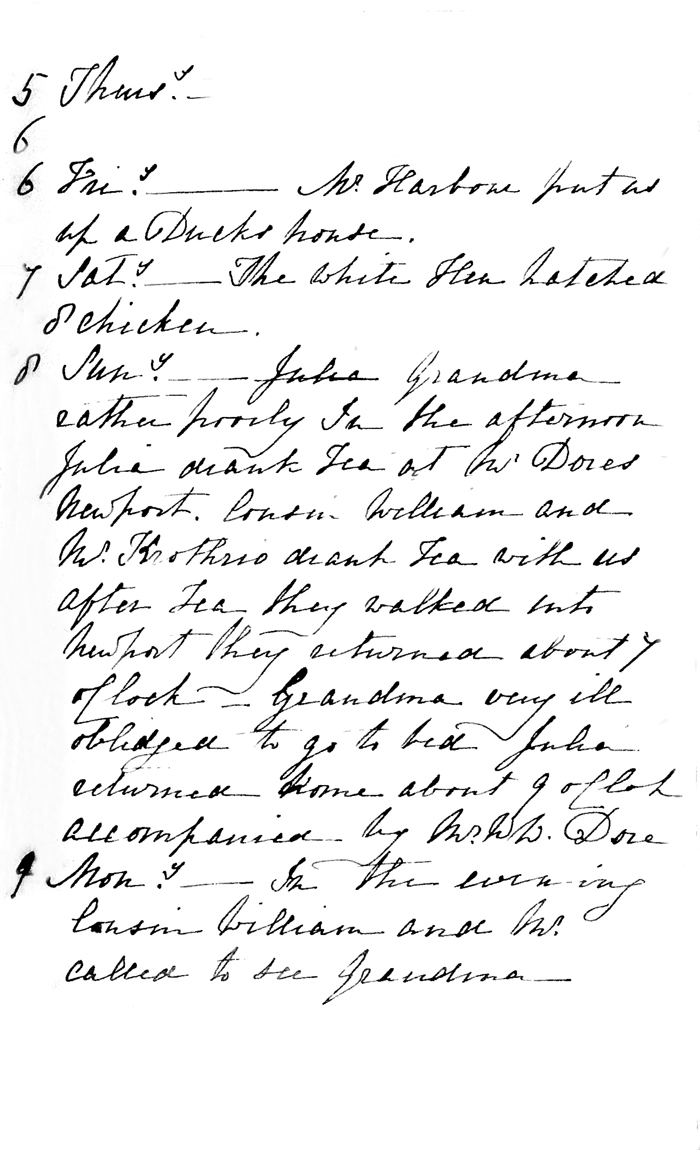 5 Thurs.y —
6
6 Fri.y — Mr. Harbour put us
up a Ducks house.
7 Sat.y — The white Hen hatched
8 chicken.
8 Sun.y — Julia Grandma
rather poorly In the afternoon
Julia drank Tea at Mr Dores
Newport. Cousin William and
Mr. drank Tea with us
after Tea they walked into
Newport they returned about 7
oClock — Grandma very ill
oblidged to go to bed Julia
returned home about 9 oClok
accompanied by Mr. W. Dore
9 Mon.y — In the evening
Cousin William and Mr.
called to see Grandma —